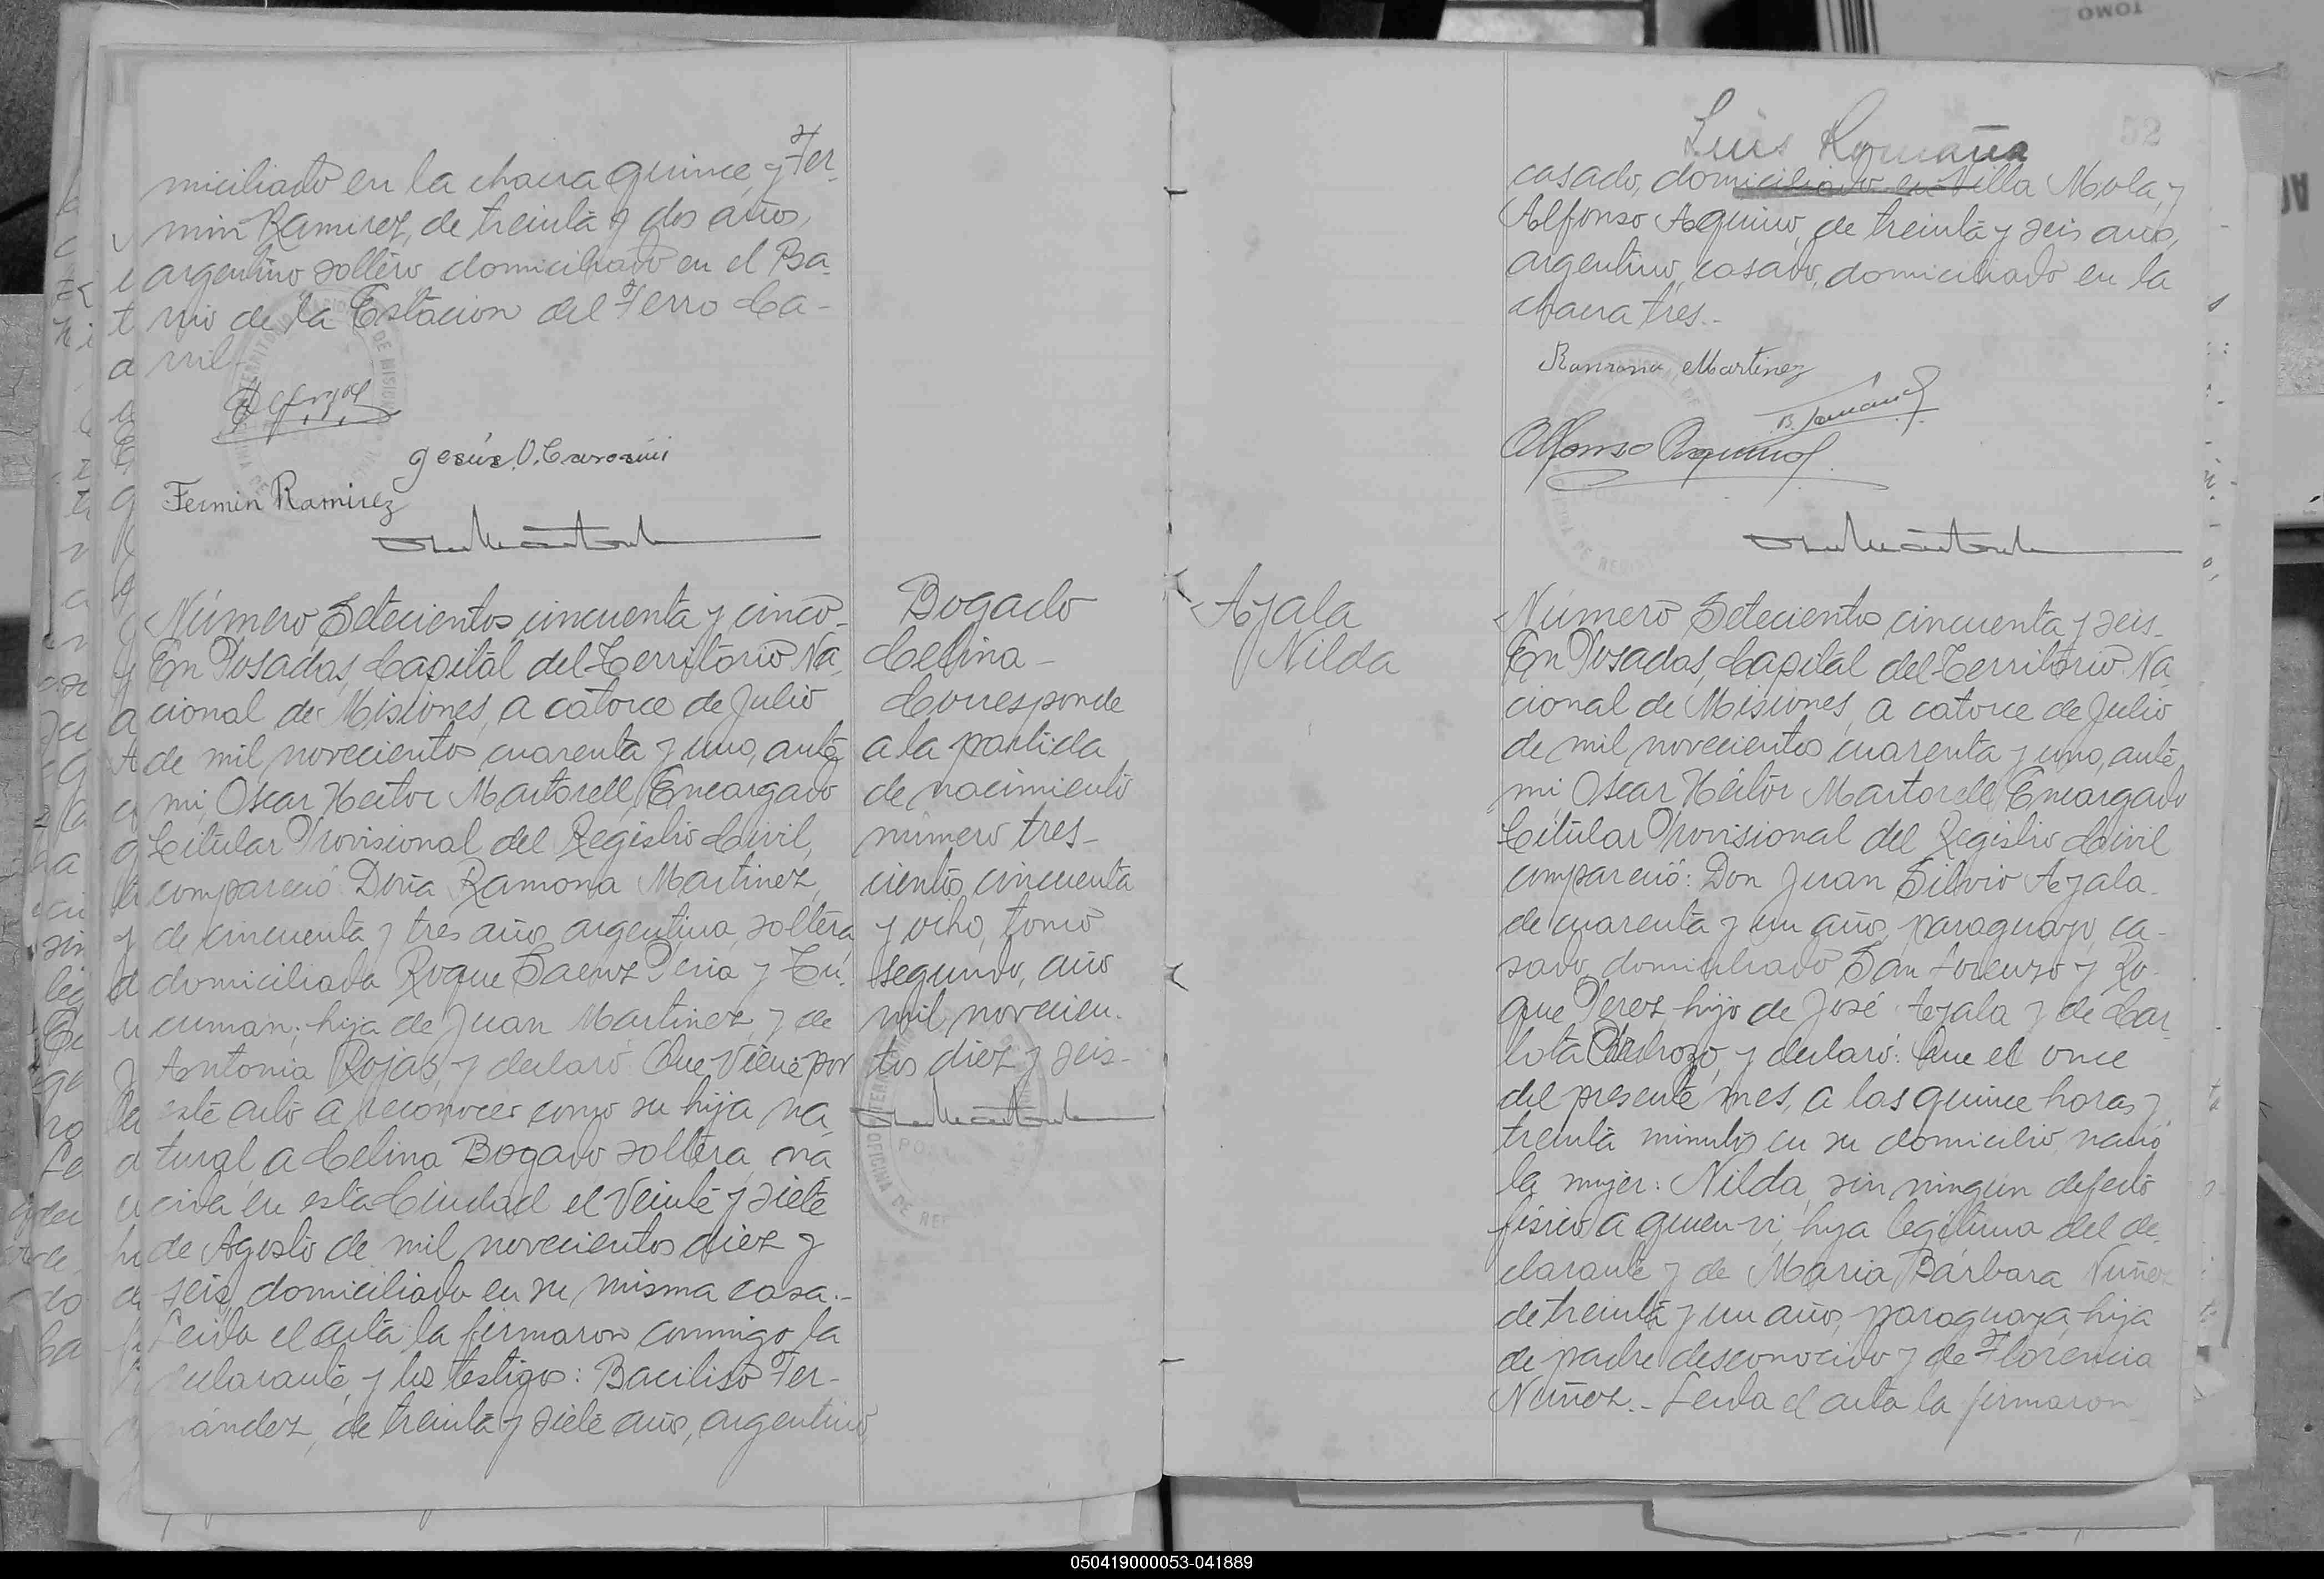 miciliado en la chacra quince, y Fer-
min Ramirez, de treinta y dos años,
argentino, soltero, domiciliado en el Ba-
rrio de la Estacion del Ferro Ca-
rril.-
Jesús O.
Fermin Ramirez
Número Setecientos cincuenta y cinco-
En Posadas, Capital del Territorio Na-
cional de Misiones, a catorce de Julio
de mil novecientos cuarenta y uno, ante
mi, Oscar Hector Martorell, Encargado
Titular Provisional del Registro Civil,
compareció: Doña Ramona Martinez,
de cincuenta y tres años, argentina, soltera
domiciliada Roque Saenz Peña y Tu-
cuman; hija de Juan Martinez y de
Antonia Rojas, y declaró: Que viene por
este acto a reconocer como su hija na-
tural, a Celina Bogado soltera, na-
cida en esta Ciudad el veinte y siete
de Agosto de mil novecientos diez y
seis, domiciliada en su misma casa.-
Leida el acta la firmaron conmigo, la
declarante, y los testigos: Baciliso Fer-
nández, de treinta y siete años, argentino,
Bogado
Celina-
Corresponde
a la partida
de nacimiento
número tres-
cientos cincuenta
y ocho, tomo
segundo, año
mil novecien-
tos diez y seis-
52
Luis Romaña
casado, domiciliado en Villa Mola, y
Alfonso Aquino, de treinta y seis años,
argentino, casado, domiciliado en la
chacra tres.-
Ramona Martinez
Alfonso Aquino
Ayala
Nilda
Número Setecientos cincuenta y seis-
En Posadas, Capital del Territorio Na-
cional de Misiones, a catorce de Julio
de mil novecientos cuarenta y uno, ante
mi, Oscar Héctor Martorell, Encargado
Titular Provisional del Registro Civil
compareció: Don Juan Silvio Ayala-
de cuarenta y un años, paraguayo, ca-
sado, domiciliado San Lorenzo y Ro-
que Perez, hijo de José Ayala y de Car-
lota Pedrozo, y declaró: Que el once
del presente mes, a las quince horas y
treinta minutos en su domicilio, nació
la mujer: Nilda, sin ningun defecto
fisico a quien vi, hija legitima del de-
clarante y de Maria Bárbara Nuñez
de treinta y un años, paraguaya, hija
de padre desconocido y de Florencia
Nuñez.- Leida el acta la firmaron
050419000053-041889